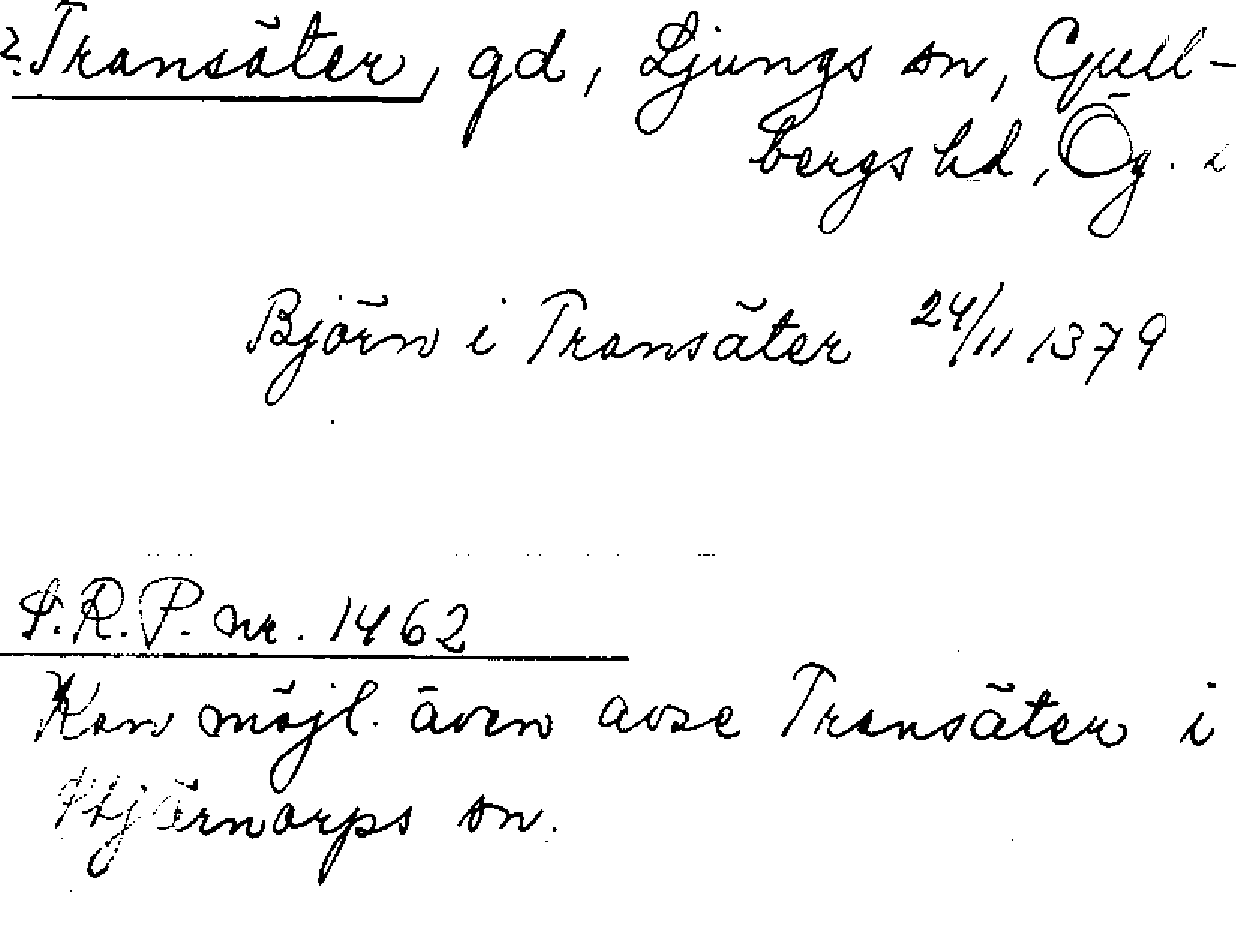 ?. Transäter, gd, Ljungs sn, Gull-
bergs hd, Ög. i
Björn i Transäter 24/11 1379
S.R.P. nr. 1462
Kan möjl. även avse Transäter i
Stjärnorps sn.